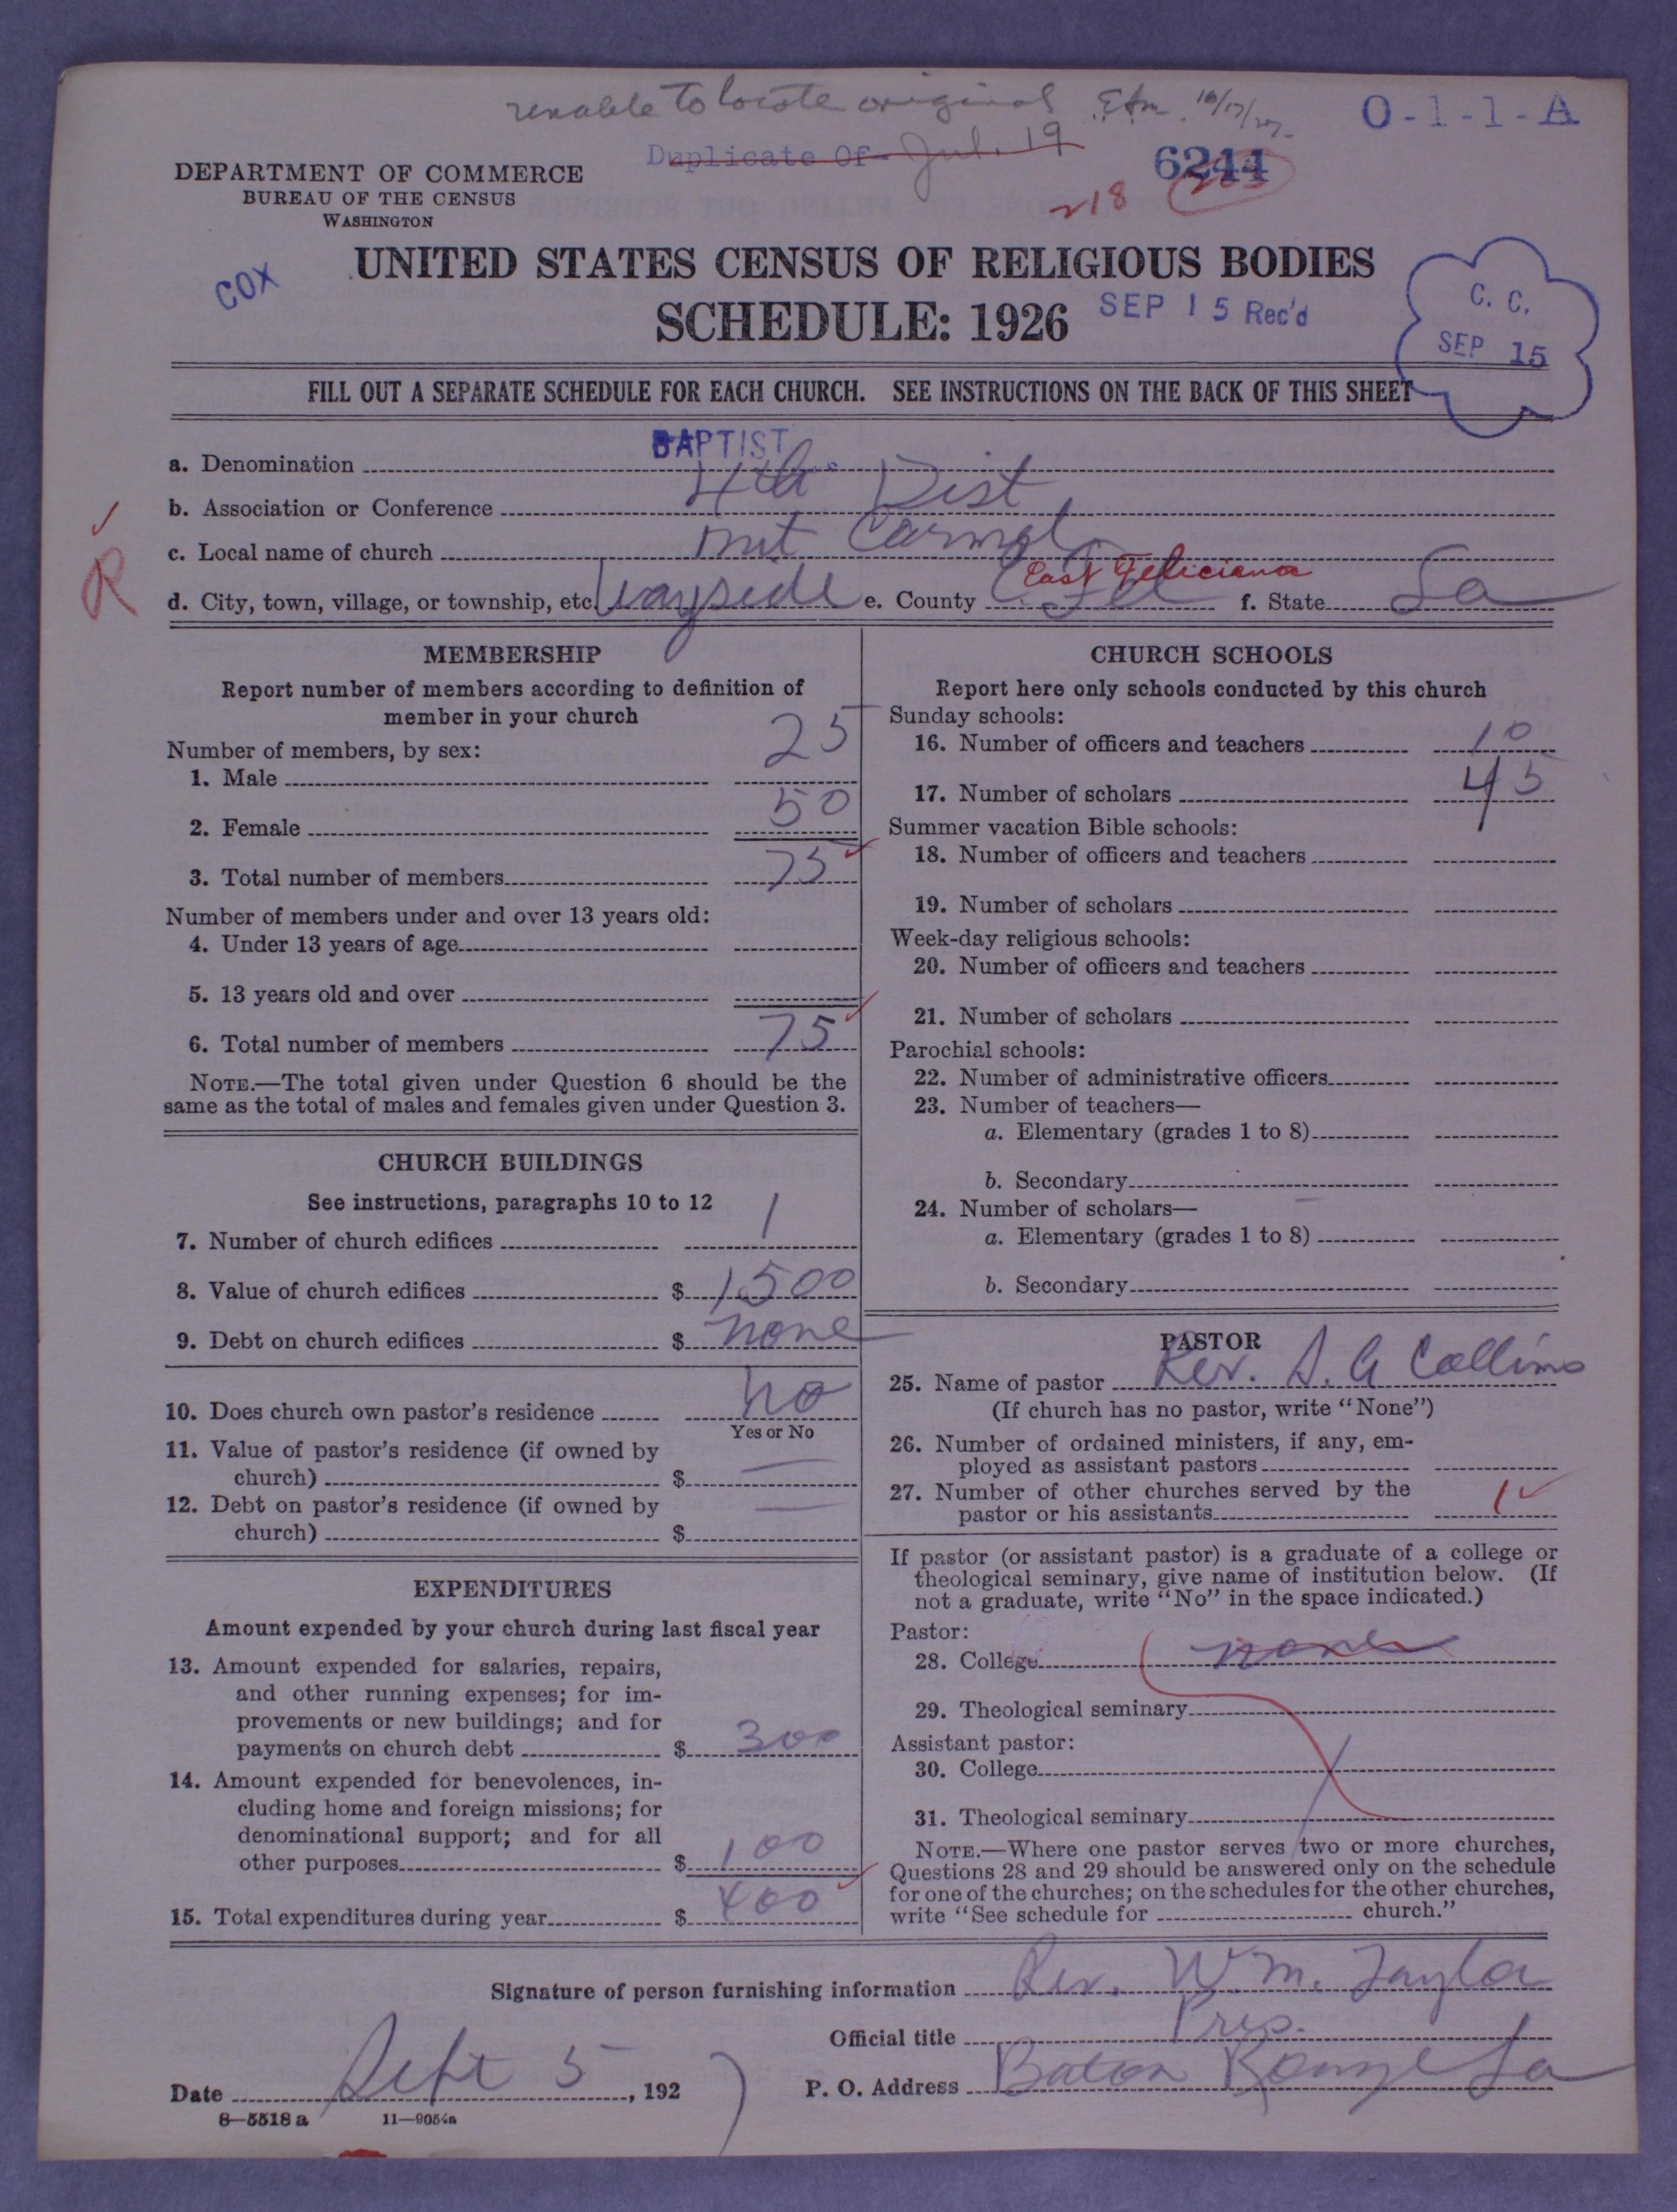 unable to locate original Efm. 10/17/27.
O-1-1-A
Duplicate Of Jul. 19
6244
218
DEPARTMENT OF COMMERCE
BUREAU OF THE CENSUS
WASHINGTON
COX
UNITED STATES CENSUS OF RELIGIOUS BODIES
SCHEDULE: 1926
SEP 15 Rec'd
C. C.
SEP 15
FILL OUT A SEPARATE SCHEDULE FOR EACH CHURCH. SEE INSTRUCTIONS ON THE BACK OF THIS SHEET
a. Denomination BAPTIST
b. Association or Conference 4th Dist
c. Local name of church mt Carmel
R
d. City, town, village, or township, etc. Wayside e. County E Fel East Feliciana f. State La
MEMBERSHIP
Report number of members according to definition of
member in your church
Number of members, by sex:
1. Male 25
2. Female 50
3. Total number of members 75
Number of members under and over 13 years old:
4. Under 13 years of age
5. 13 years old and over
6. Total number of members 75
NOTE.—The total given under Question 6 should be the
same as the total of males and females given under Question 3.
CHURCH BUILDINGS
See instructions, paragraphs 10 to 12
7. Number of church edifices 1
8. Value of church edifices $ 1500
9. Debt on church edifices $ none
10. Does church own pastor's residence no
Yes or No
11. Value of pastor's residence (if owned by
church) $ —
12. Debt on pastor's residence (if owned by
church) $ —
EXPENDITURES
Amount expended by your church during last fiscal year
13. Amount expended for salaries, repairs,
and other running expenses; for im-
provements or new buildings; and for
payments on church debt $ 300
14. Amount expended for benevolences, in-
cluding home and foreign missions; for
denominational support; and for all
other purposes $ 100
15. Total expenditures during year $ 400
CHURCH SCHOOLS
Report here only schools conducted by this church
Sunday schools:
16. Number of officers and teachers 10
17. Number of scholars 45
Summer vacation Bible schools:
18. Number of officers and teachers
19. Number of scholars
Week-day religious schools:
20. Number of officers and teachers
21. Number of scholars
Parochial schools:
22. Number of administrative officers
23. Number of teachers—
a. Elementary (grades 1 to 8)
b. Secondary
24. Number of scholars—
a. Elementary (grades 1 to 8)
b. Secondary
PASTOR
25. Name of pastor Rev. S. A Collins
(If church has no pastor, write "None")
26. Number of ordained ministers, if any, em-
ployed as assistant pastors
27. Number of other churches served by the
pastor or his assistants 1
If pastor (or assistant pastor) is a graduate of a college or
theological seminary, give name of institution below. (If
not a graduate, write "No" in the space indicated.)
Pastor:
28. College none
29. Theological seminary
Assistant pastor:
30. College
31. Theological seminary
NOTE.—Where one pastor serves two or more churches,
Questions 28 and 29 should be answered only on the schedule
for one of the churches; on the schedules for the other churches,
write "See schedule for church."
Signature of person furnishing information Rev. Wm. Taylor
Official title Pres.
Date Sept 5, 1927 P. O. Address Baton Rouge La
8—5518 a 11—9054a